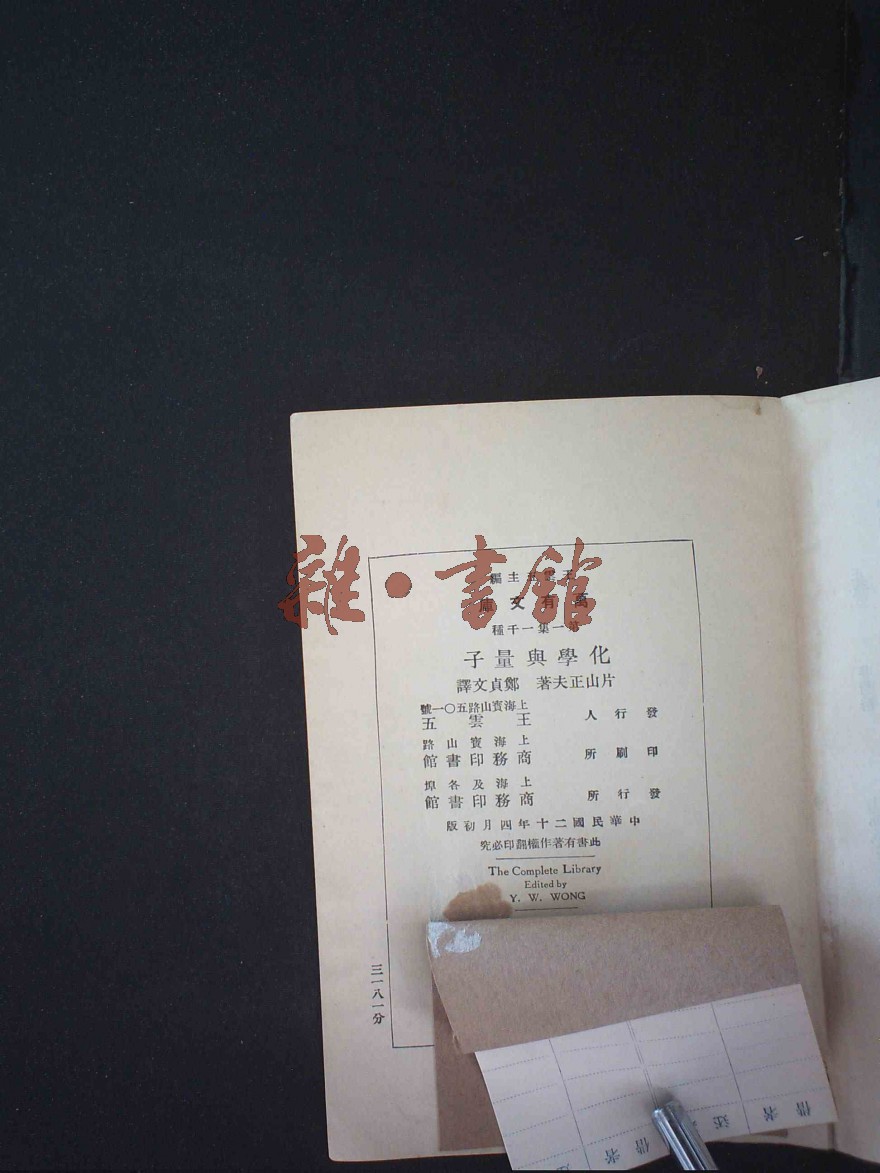 雜·書館
王雲五主編
萬有文庫
第一集一千種
化學與量子
片山正夫著 鄭貞文譯
發行人
上海寶山路五〇一號
王雲五
印刷所
上海寶山路
商務印書館
發行所
上海及各埠
商務印書館
中華民國二十年四月初版
此書有著作權翻印必究
The Complete Library
Edited by
Y. W. WONG
三一八一分
借者
借者